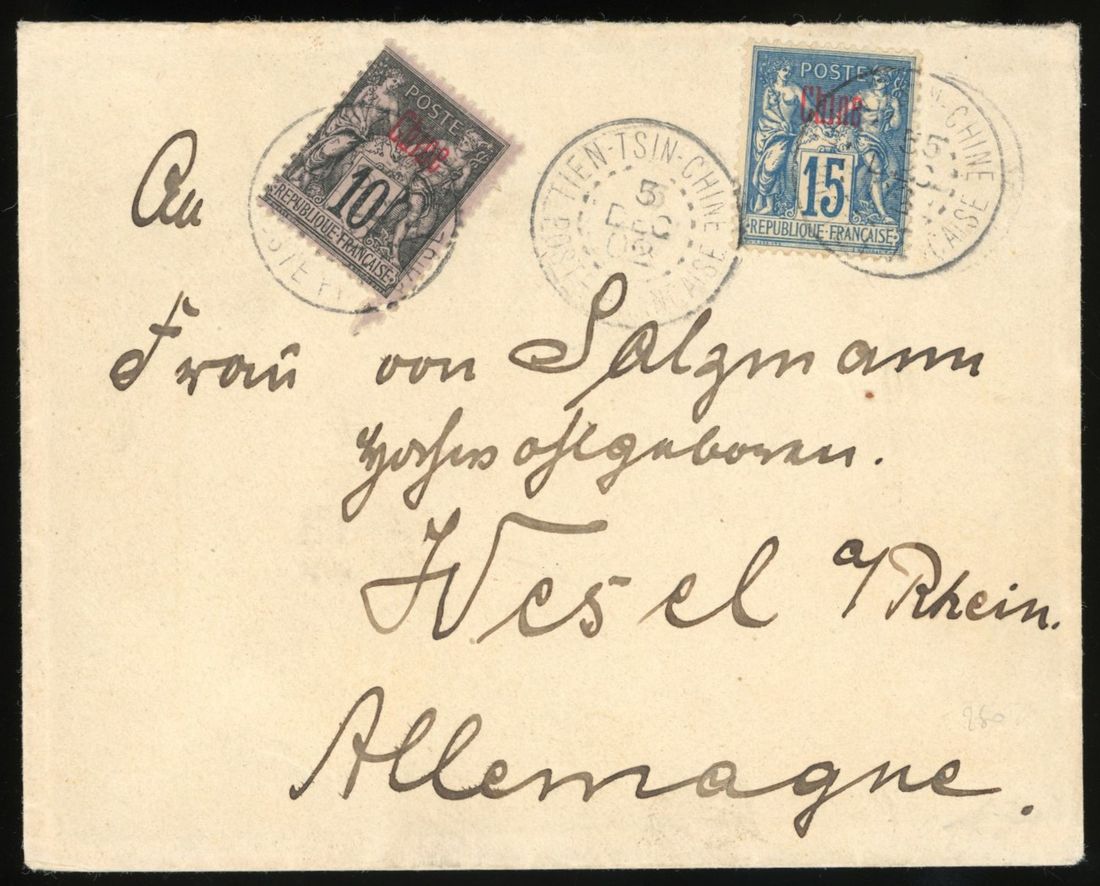 POSTE
Chine
10
REPUBLIQUE FRANÇAISE
TIEN-TSIN-CHINE
5
DEC
02
POSTE
POSTE
Chine
15
REPUBLIQUE FRANÇAISE
CHINE
An
Frau von Salzmann
Hochwohlgeboren.
Wesel a/Rhein.
Allemagne.